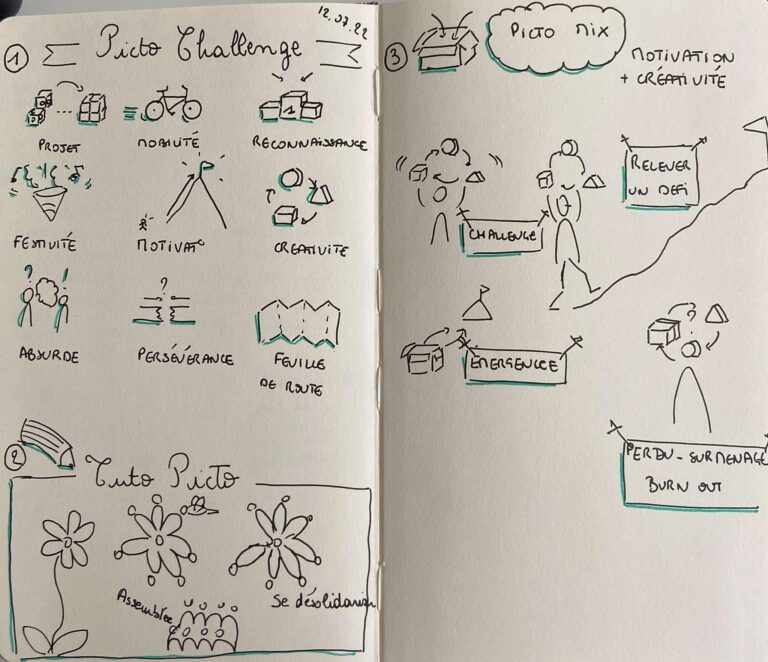 12.07.22
1 Picto Challenge
PROJET
MOBILITÉ
1
RECONNAISSANCE
FESTIVITÉ
MOTIVAT°
CREATIVITE
? !
ABSURDE
?
PERSÉVÉRANCE
FEUILLE
DE ROUTE
2
Tuto Picto
Assemblée
Se désolidariser
3
PICTO MIX
MOTIVATION
+ CRÉATIVITÉ
RELEVER
UN DEFI
CHALLENGE
EMERGENCE
?
PERDU - SURMENAGE
BURN OUT